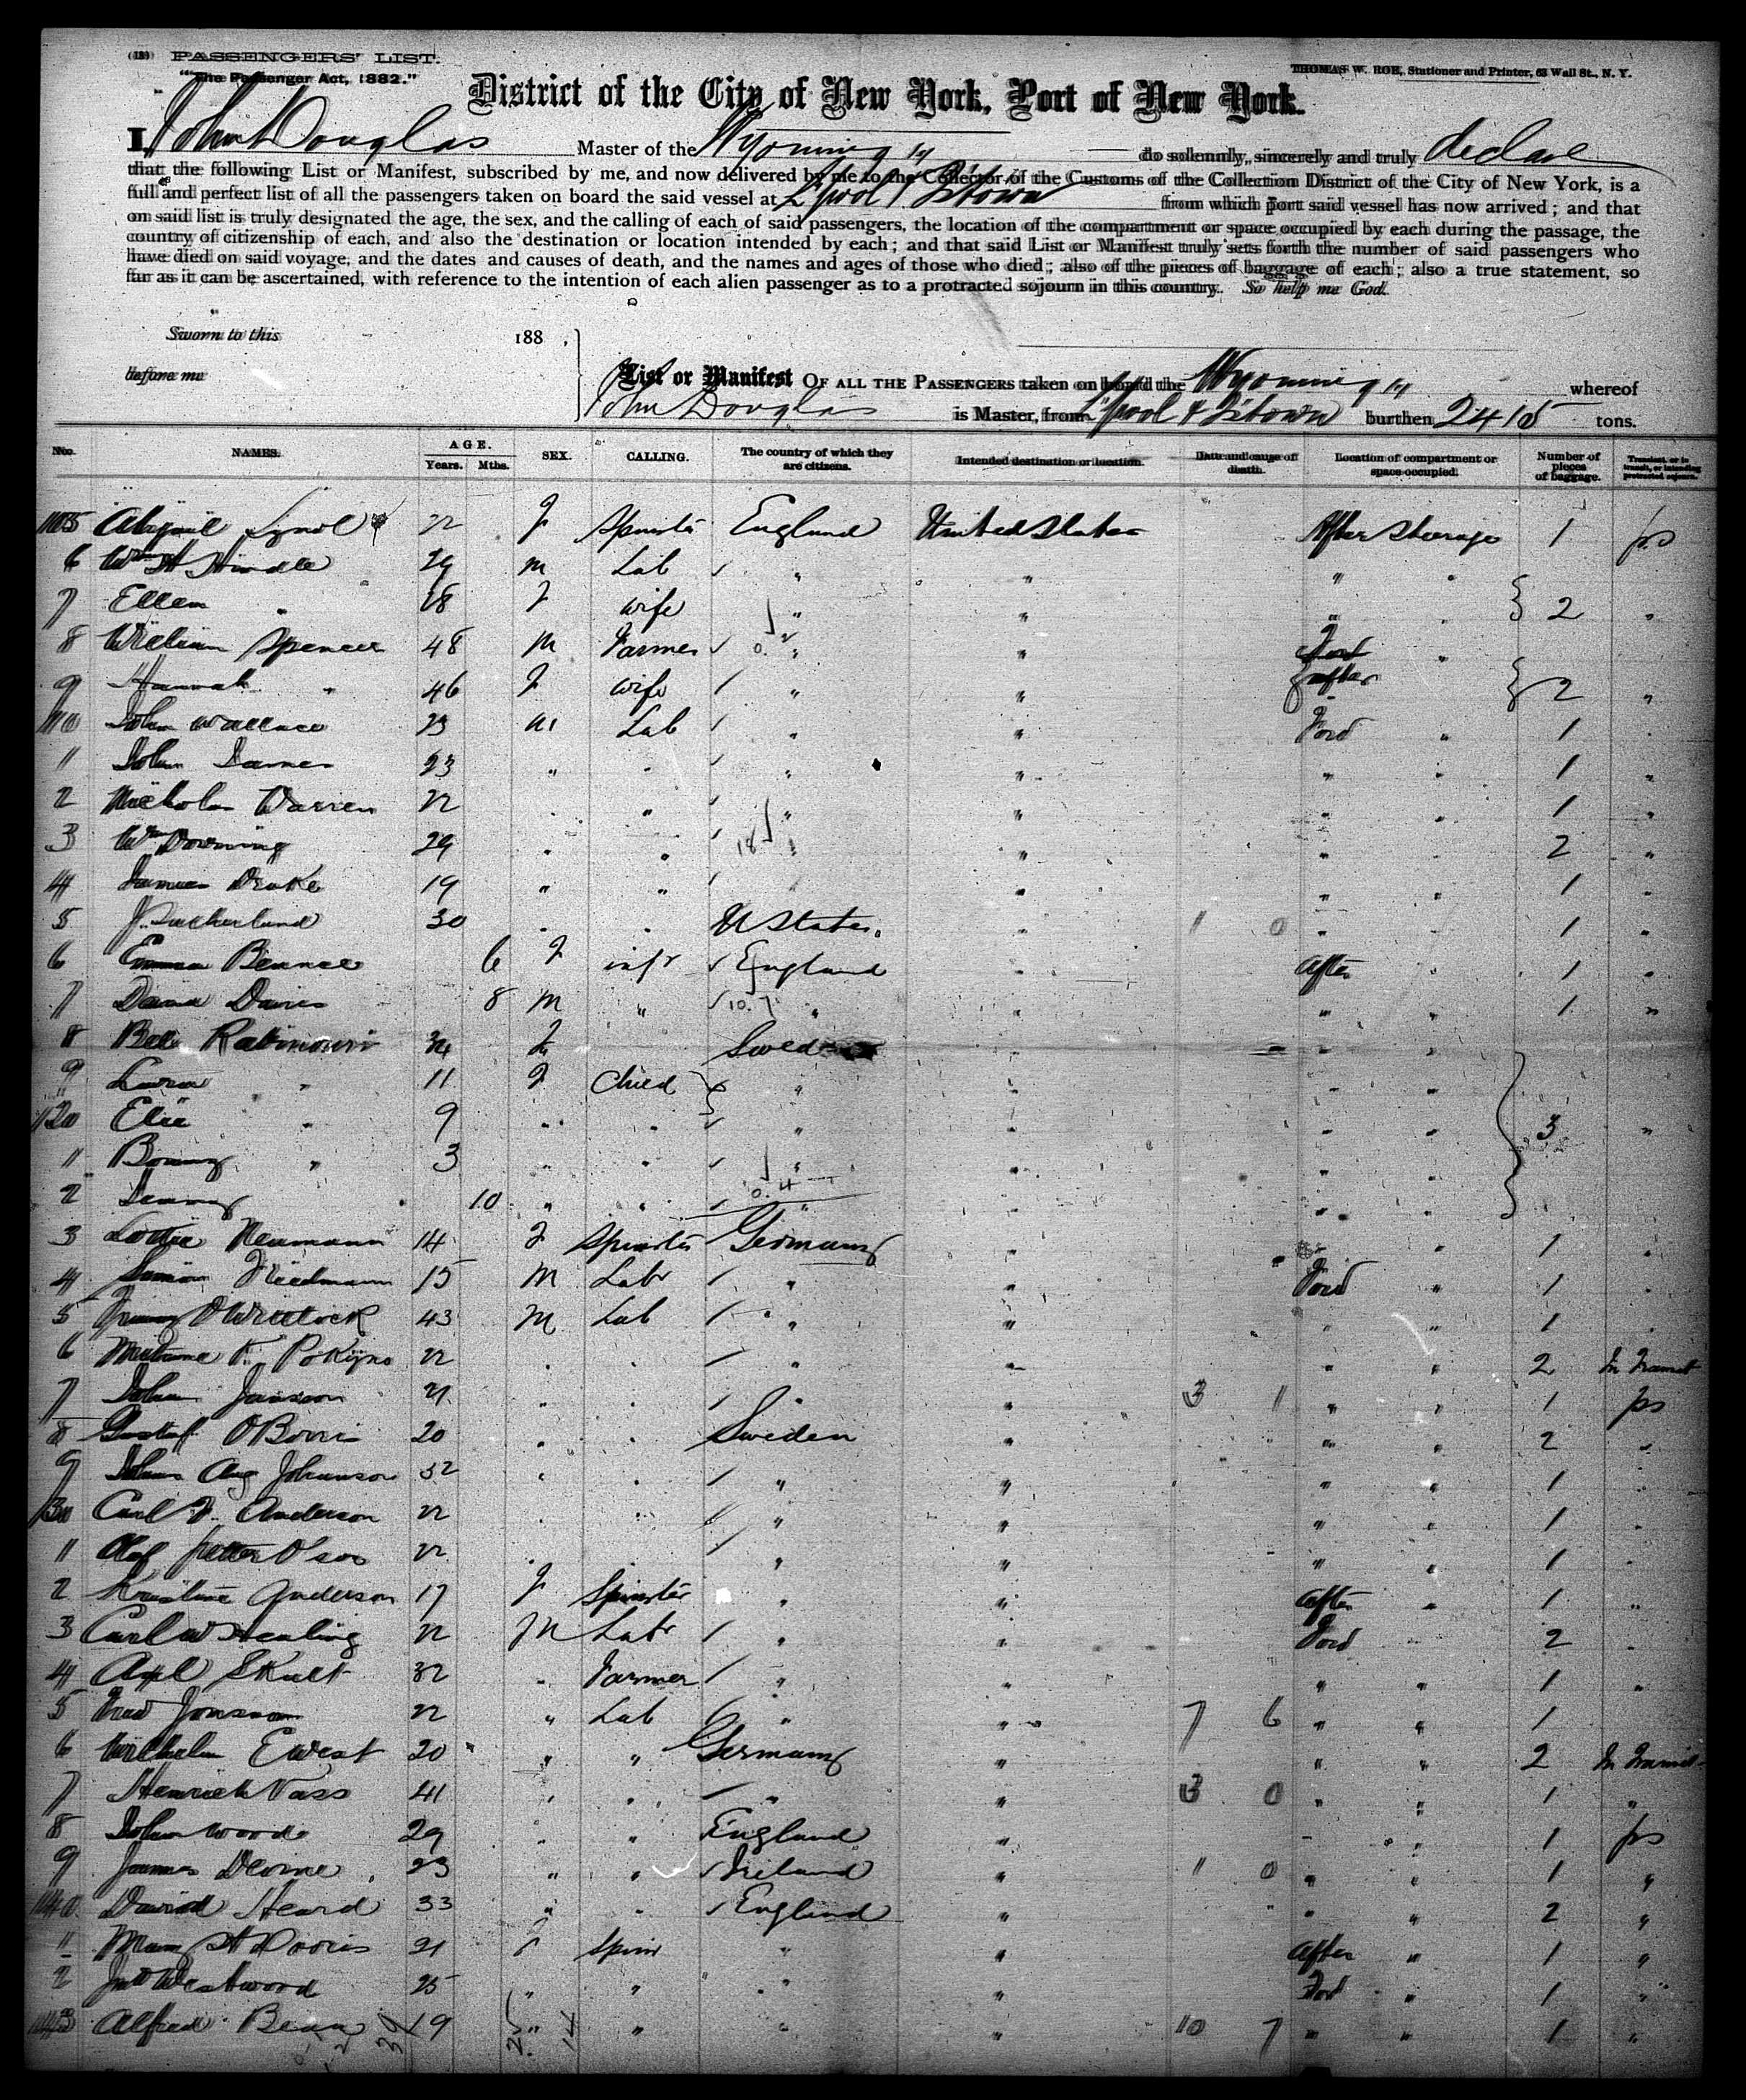 (18) PASSENGERS' LIST.
"The Passenger Act, 1882."
THOMAS W. ROE, Stationer and Printer, 63 Wall St., N. Y.
District of the City of New York, Port of New York.
I, John Douglas Master of the Wyoming do solemnly, sincerely and truly declare
that the following List or Manifest, subscribed by me, and now delivered by me to the Collector of the Customs of the Collection District of the City of New York, is a
full and perfect list of all the passengers taken on board the said vessel at L'pool & Q'stown from which port said vessel has now arrived; and that
on said list is truly designated the age, the sex, and the calling of each of said passengers, the location of the compartment or space occupied by each during the passage, the
country of citizenship of each, and also the destination or location intended by each; and that said List or Manifest truly sets forth the number of said passengers who
have died on said voyage, and the dates and causes of death, and the names and ages of those who died; also of the pieces of baggage of each; also a true statement, so
far as it can be ascertained, with reference to the intention of each alien passenger as to a protracted sojourn in this country. So help me God.
Sworn to this 188 ,
before me
List or Manifest OF ALL THE PASSENGERS taken on board the Wyoming whereof
John Douglas is Master, from L'pool & Q'stown burthen 2415 tons.
No. NAMES. AGE. Years. Mths. SEX. CALLING. The country of which they are citizens. Intended destination or location. Date and cause of death. Location of compartment or space occupied. Number of pieces of baggage. Transient, or in transit, or intending protracted sojourn.
1105 Abigail 22 F Spinster England United States After Steerage 1 ps
6 Wm H Hindle 29 M Lab " " " "
7 Ellen " 18 F wife " " " " 2 "
8 William Spencer 48 M Farmer " " "
9 Hannah " 46 F wife " " after 2 "
1110 John Wallace 23 M Lab " " Ford " 1
11 John James 23 " " " " " " 1 "
2 Nicholas Warren 22 " " " " " " 1 "
3 Wm Downing 29 " " " " " 2 "
4 James Drake 19 " " " " " 1 "
5 J. Sutherland 30 " " U States " 1 0 " " 1 "
6 Emma 6 F inft England " After " 1 "
7 David Davies 8 M " " " " " 1 "
8 34 F Swed " " "
9 Laura " 11 F Child " " " "
1120 " 9 " " " " " " 3 "
11 " 3 " " " " " "
2 10 " " " " " "
3 Lottie Neumann 14 F Spinster Germany " " " 1 "
4 Simon Friedmann 15 M Labr " " Ford " 1 "
5 43 M Lab " " " " 1 "
6 22 " " " " " " 2 In Transit
7 Johan 21 " " " " 3 1 " " 1 ps
8 Gustaf 20 " " Sweden " " " 2 "
9 Johan Aug Johanson 32 " " " " " " 1 "
1130 Carl F. Anderson 22 " " " " " " 1 "
11 Olof Petter Olson 22 " " " " " " 1 "
2 Kristine Anderson 17 F Spinster " " After " 1 "
3 Carl W 22 M Labr " " Ford 2 "
4 Axel Skult 32 " Farmer " " " " 1 "
5 22 " Lab " " 7 6 " " 1
6 Wilhelm 20 " " Germany " " 2 In Transit
7 Heinrich Vass 41 " " " " 3 0 " " 1 "
8 John Wood 29 " " England " " " 1 ps
9 James Devine 23 " " Ireland " 1 0 " " 1 "
1140 David Heard 33 " " England " " " 2 "
11 Mary A 21 F Spinr " " After " 1 "
2 Westwood 25 " " " " Ford " 1 "
1143 Alfred 19 " " " " 10 7 " " 1 "